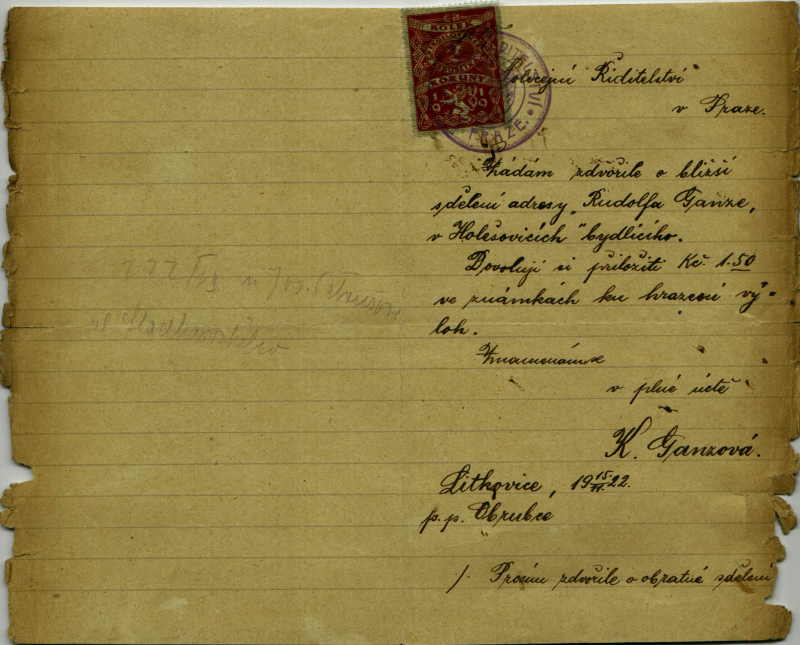 KOLEK
KORUNY
1919
PRAZE.
Policejní Řiditelství
v Praze.
Žádám zdvořile o bližší
sdělení adresy „Rudolfa Ganze,
v Holešovicích" bydlícího.
Dovoluji si přiložiti Kč. 1.50
ve známkách ku hrazení vý-
loh.
Znamenám se
v plné úctě
K. Ganzová.
Litkovice, 19 15/II. 22.
p. p. Obrubce
/. Prosím zdvořile o obratné sdělení